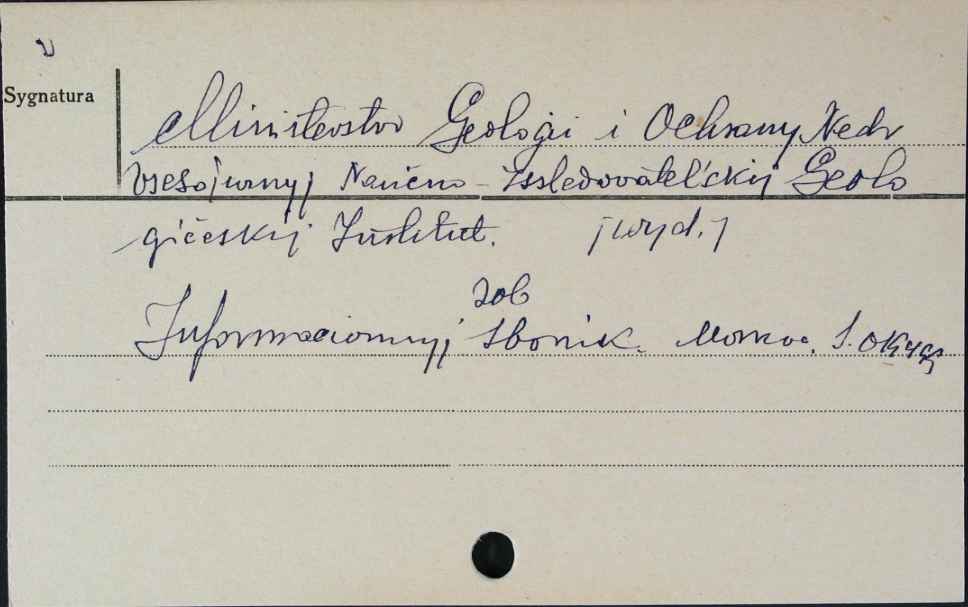 Sygnatura
Ministerstvo Geologii i Ochrany Nedr
Vsesojuznyj Naučno-Issledovatel'skij Geolo
gičeskij Institut. [wyd.]
zob
Informacionnyj Sbornik. Moskva.